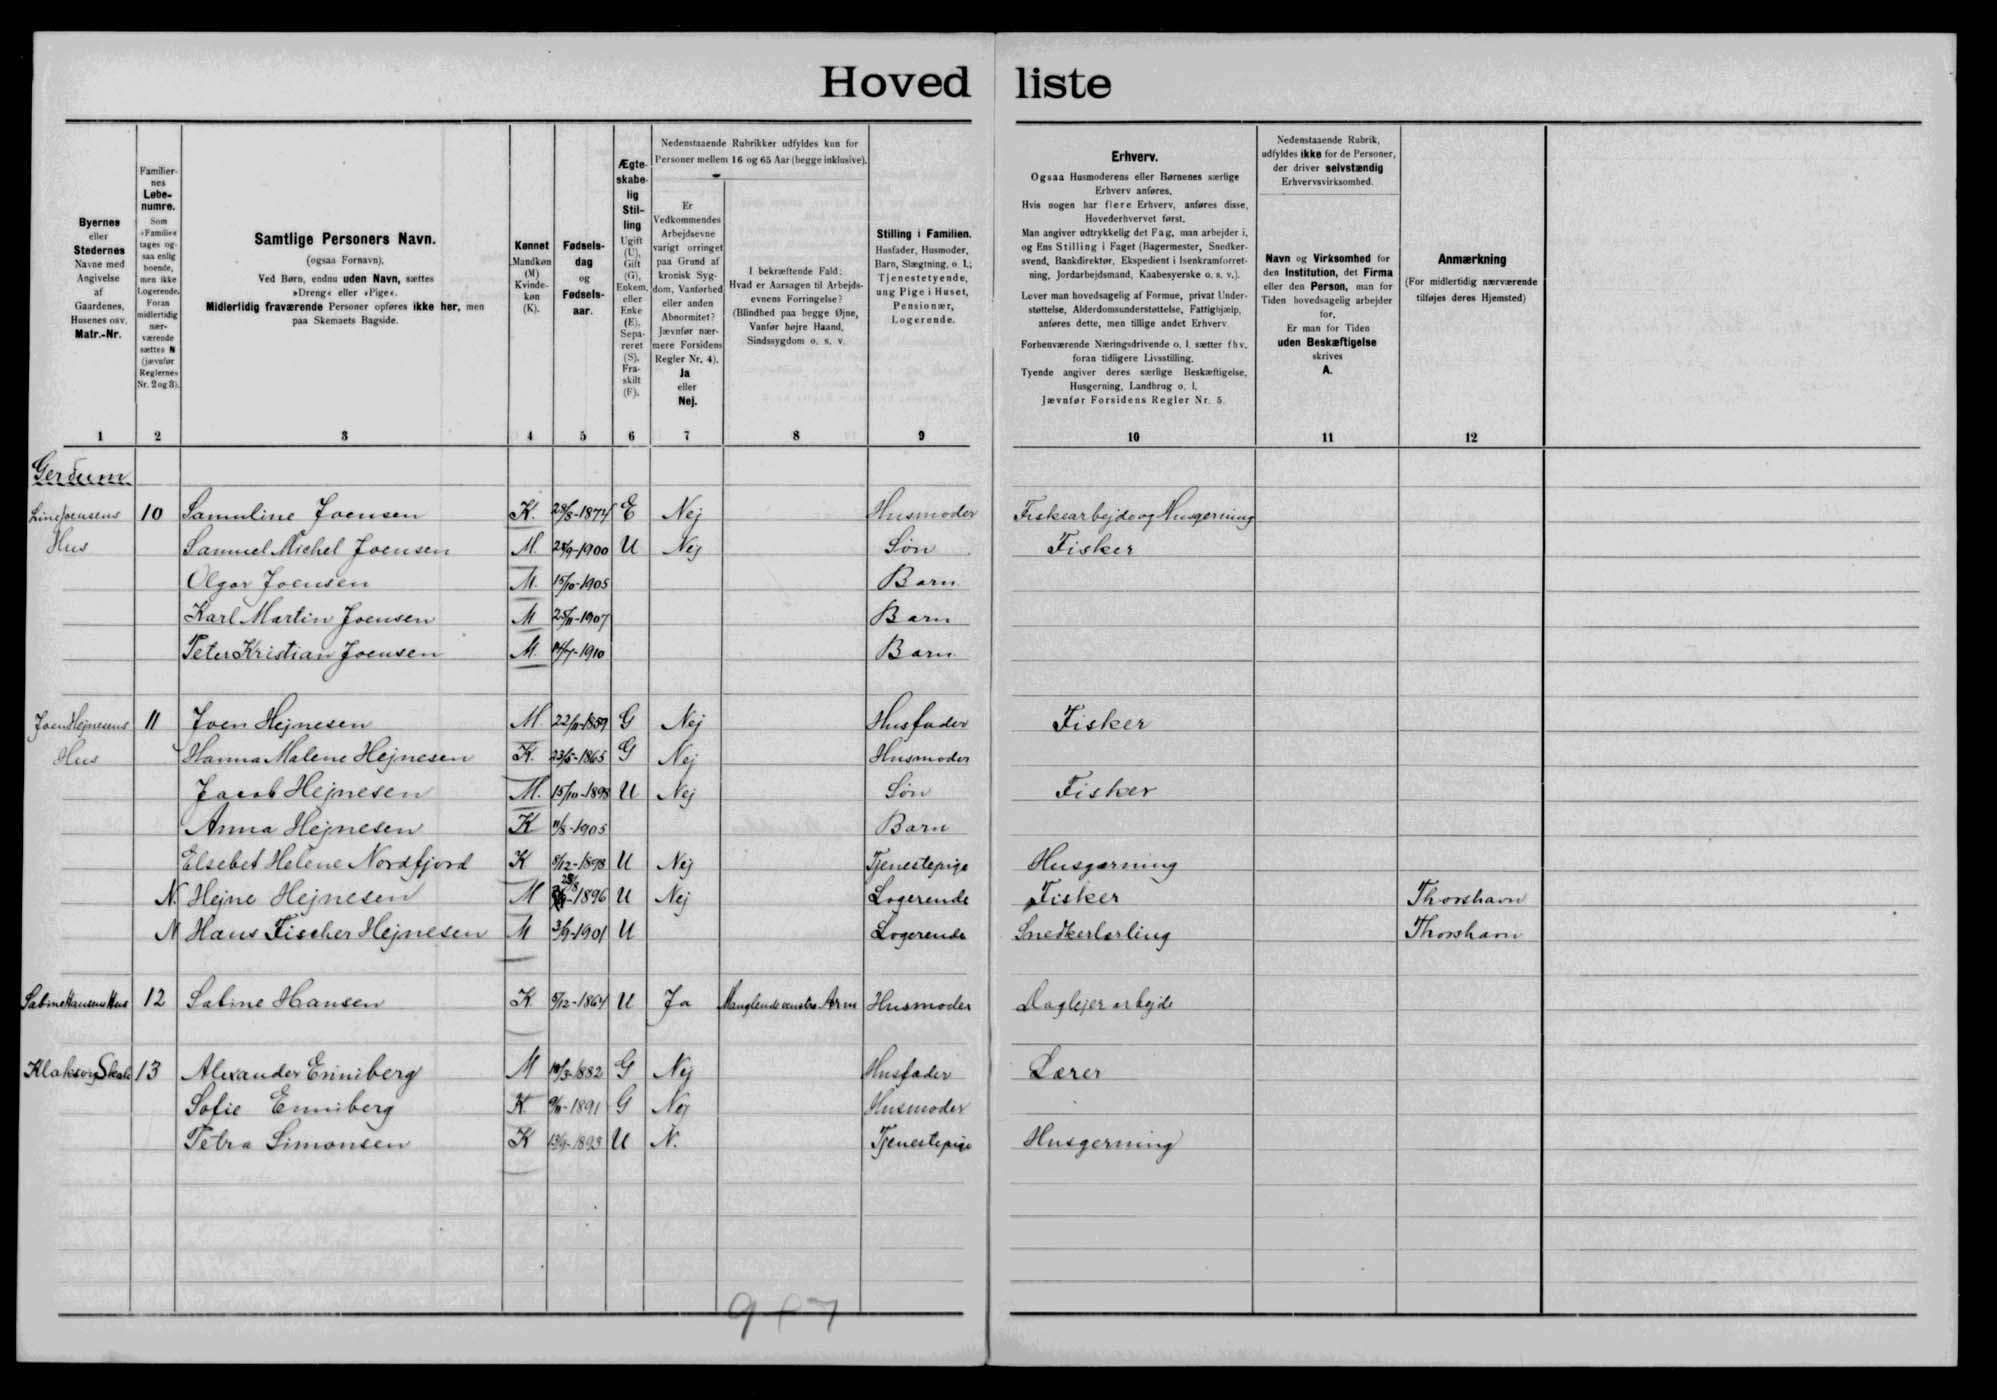 Hoved liste
Byernes
eller
Stedernes
Navne med
Angivelse
af
Gaardenes,
Husenes osv.
Matr.-Nr.
Familier-
nes
Løbe-
numre.
Som
»Familie«
tages og-
saa enlig
boende,
men ikke
Logerende.
Foran
midlertidig
nær-
værende
sættes N
(jævnfør
Reglernes
Nr. 2 og 3).
Samtlige Personers Navn.
(ogsaa Fornavn).
Ved Børn, endnu uden Navn, sættes
»Dreng« eller »Pige«.
Midlertidig fraværende Personer opføres ikke her, men
paa Skemaets Bagside.
Kønnet
Mandkøn
(M)
Kvinde-
køn
(K).
Fødsels-
dag
og
Fødsels-
aar.
Ægte-
skabe-
lig
Stil-
ling
Ugift
(U),
Gift
(G),
Enkem.
eller
Enke
(E),
Sepa-
reret
(S).
Fra-
skilt
(F).
Nedenstaaende Rubrikker udfyldes kun for
Personer mellem 16 og 65 Aar (begge inklusive).
Er
Vedkommendes
Arbejdsevne
varigt forringet
paa Grund af
kronisk Syg-
dom, Vanførhed
eller anden
Abnormitet?
Jævnfør nær-
mere Forsidens
Regler Nr. 4).
Ja
eller
Nej.
I bekræftende Fald:
Hvad er Aarsagen til Arbejds-
evnens Forringelse?
(Blindhed paa begge Øjne,
Vanfør højre Haand,
Sindssygdom o. s. v.
Stilling i Familien.
Husfader, Husmoder,
Barn, Slægtning, o. l.;
Tjenestetyende,
ung Pige i Huset,
Pensionær,
Logerende.
Erhverv.
Ogsaa Husmoderens eller Børnenes særlige
Erhverv anføres.
Hvis nogen har flere Erhverv, anføres disse,
Hovederhvervet først.
Man angiver udtrykkelig det Fag, man arbejder i,
og Ens Stilling i Faget (Bagermester, Snedker-
svend, Bankdirektør, Ekspedient i Isenkramforret-
ning, Jordarbejdsmand, Kaabesyerske o. s. v.).
Lever man hovedsagelig af Formue, privat Under-
støttelse, Alderdomsunderstøttelse, Fattighjælp,
anføres dette, men tillige andet Erhverv.
Forhenværende Næringsdrivende o. l. sætter fhv.
foran tidligere Livsstilling.
Tyende angiver deres særlige Beskæftigelse,
Husgerning, Landbrug o. l.
Jævnfør Forsidens Regler Nr. 5.
Nedenstaaende Rubrik,
udfyldes ikke for de Personer,
der driver selvstændig
Erhvervsvirksomhed.
Navn og Virksomhed for
den Institution, det Firma
eller den Person, man for
Tiden hovedsagelig arbejder
for.
Er man for Tiden
uden Beskæftigelse
skrives
A.
Anmærkning
(For midlertidig nærværende
tilføjes deres Hjemsted)
1 2 3 4 5 6 7 8 9 10 11 12
Gerdum
Line Joensens 10 Samuline Joensen K. 28/8-1874 E Nej Husmoder Fiskearbejde og Husgerning
Hus Samuel Michel Joensen M. 28/9-1900 U Nej Søn Fisker
Olgar Joensen M. 15/10-1905 Barn
Karl Martin Joensen M 25/11-1907 Barn
Peter Kristian Joensen M. 14/7-1910 Barn
Joen Hejnesens 11 Joen Hejnesen M 22/11-1859 G Nej Husfader Fisker
Hus Hanna Malene Hejnesen K. 23/5-1865 G Nej Husmoder
Jacob Hejnesen M. 15/10-1898 U Nej Søn Fisker
Anna Hejnesen K 11/8-1905 Barn
Elsebet Helene Nordfjord K 8/12-1898 U Nej Tjenestepige Husgerning
N. Hejne Hejnesen M 28/8-1896 U Nej Logerende Fisker Thorshavn
N Hans Fischer Hejnesen M 3/9-1901 U Logerende Snedkerlærling Thorshavn
Sabine Hansens Hus 12 Sabine Hansen K 5/12-1864 U Ja Manglende venstre Arm Husmoder Daglejerarbejde
Klaksvig Skole 13 Alexander Enniberg M 10/3-1882 G Nej Husfader Lærer
Sofie Enniberg K 9/11-1891 G Nej Husmoder
Petra Simonsen K 13/9-1893 U N. Tjenestepige Husgerning